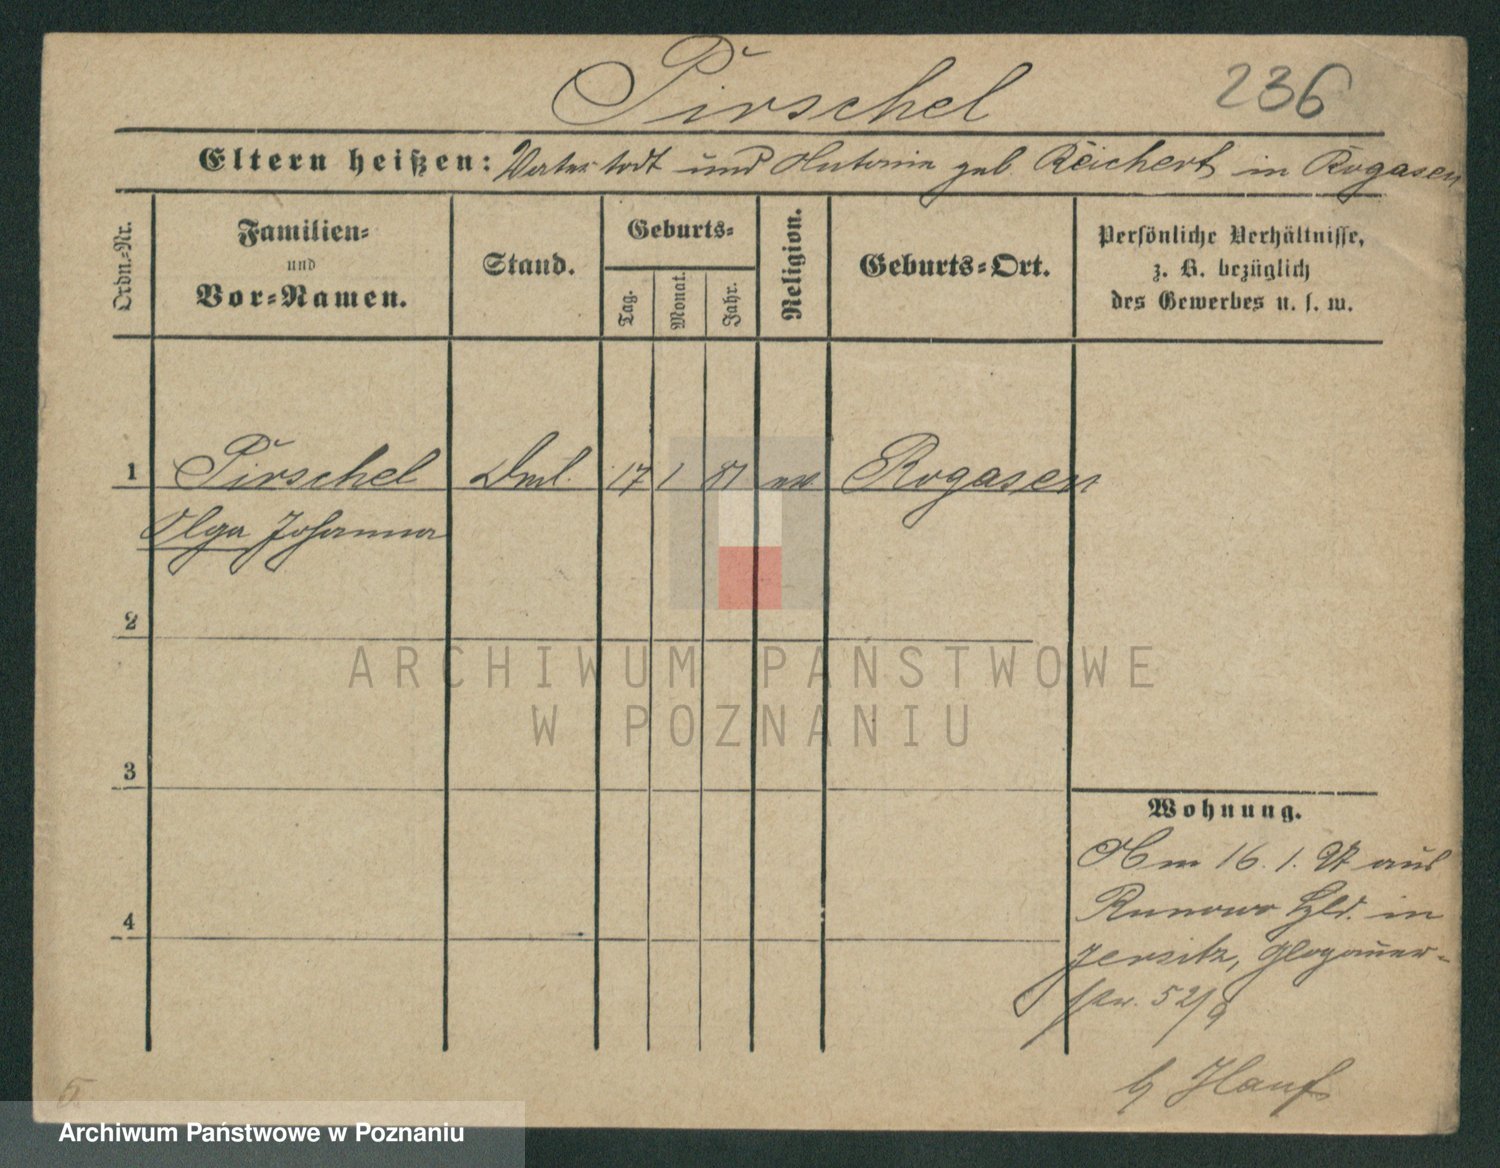 Pirschel
236
Eltern heißen: Vater todt und Antonie geb Reichert in Rogasen
Ordn.-Nr.
Familien-
und
Vor-Namen.
Stand.
Geburts-
Tag.
Monat.
Jahr.
Religion.
Geburts-Ort.
Persönliche Verhältnisse,
z. B. bezüglich
des Gewerbes u. s. w.
1 Pirschel 17 1 81 ev. Rogasen
Olga Johanna
2
3
4
ARCHIWUM PAŃSTWOWE
W POZNANIU
Wohnung.
Am 16. 1. aus
Runowo in
Jersitz, Glogauer-
str. 52/9
b/
5
Archiwum Państwowe w Poznaniu